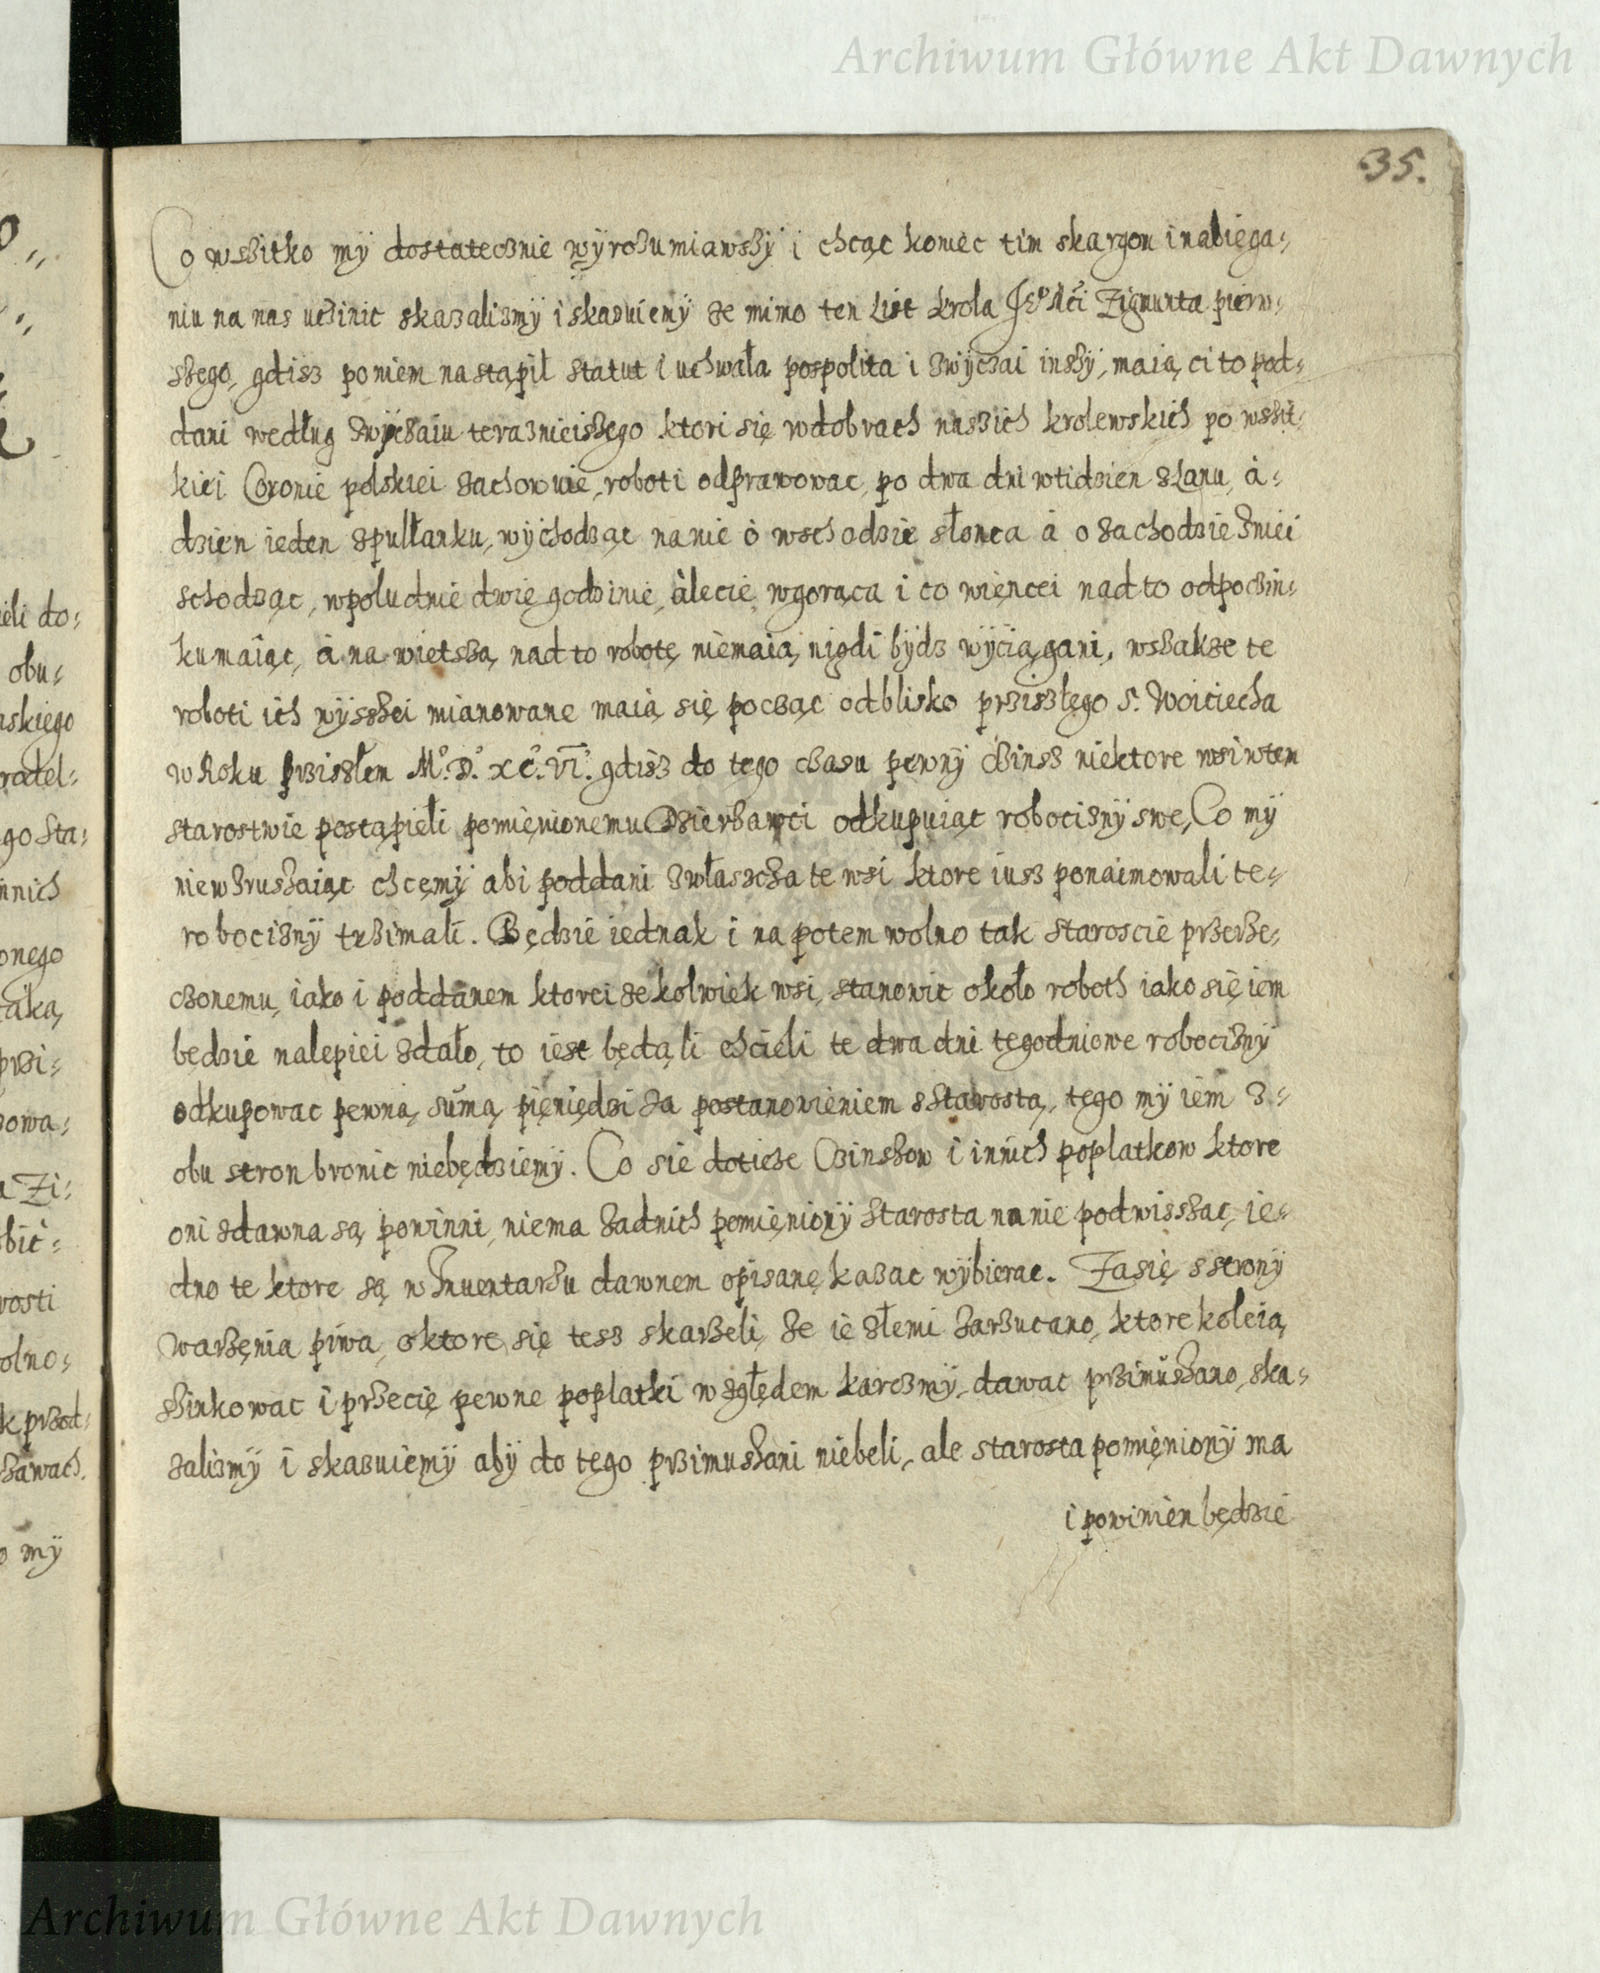 Archiwum Główne Akt Dawnych
35.
Co wszitko mÿ dostatecznie wÿrozumiawszÿ i chcąc koniec tim skargom i nabiega⸗
niu na nas uczinic skazalismÿ i skazuiemÿ ze mimo ten List krola Je° Mći Zigmunta pierw⸗
szego, gdisz poniem nastąpil statut i uchwała pospolita i zwÿczai inszÿ, maią ci to pod⸗
dani według zwÿczaiu teraznieiszego ktori się wdobrach naszich krolewskich po wszit⸗
kiei Coronie polskiei zachowuie, roboti odprawowac, po dwa dni wtidzien zLanu, à⸗
dzien ieden zpułłanku, wÿchodząc nanie o wschodzie słonca à o zachodzie zniei
schodząc, wpoludnie dwie godzinie, àlecie wgorąca i co więncei nad to odpoczin⸗
kumaiąc, à na wietszą nad to robotę niemaią nigdi bÿdz wÿciągani, wszakze te
roboti ich wÿsshei mianowane maią się począc odblisko prziszłego S. Woiciecha
w Roku prziszłem M.° D.° xc.° vi.° gdisz do tego czasu pewnÿ czinsz niektore wsi wtem
starostwie postąpieli pomięnionemu Dzierzawci odkupuiąc robociznÿ swe, Co mÿ
niewzruszaiąc chcęmÿ abi poddani zwłaszcza te wsi ktore iusz ponaimowali te⸗
robociznÿ trzimali. Będzie iednak i na potem wolno tak staroscie przerze⸗
czonemu, iako i poddanem ktorei ze kolwiek wsi, stanowic około roboth iako się iem
będzie nalepiei zdało, to iest będąli chcieli te dwa dni tegodniowe robociznÿ
odkupowac pewną sumą pięniędzi za postanowieniem sstarostą, tego mÿ iem z⸗
obu stron bronic niebędziemÿ. Co sie doticze Czinszow i innich poplatkow ktore
oni zdawna są powinni, niema zadnich pomięnionÿ starosta nanie podwisszac, ie⸗
dno te ktore są w Inuentarzu dawnem opisanę kazac wÿbierac. Zasię sstronÿ
warzęnia piwa, oktore się tesz skarzeli ze ie złemi zarzucano, ktore koleią
szinkowac i przecię pewne poplatki względem karczmÿ dawac przimuszano, ska⸗
zalismÿ i skazuiemÿ abÿ do tego przimuszani niebeli, ale starosta pomięnionÿ ma
i powinien będzie
Archiwum Główne Akt Dawnych